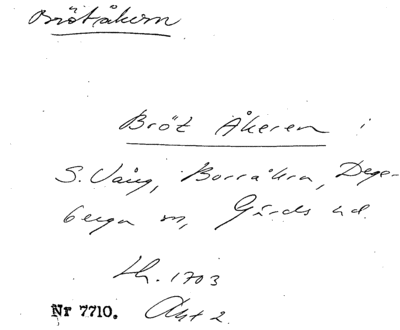 Brötåkern
Bröt Åkeren i
S. Vång, Borråkra, Dege-
berga sn, Gärds hd.
Lh. 1703
Nr 7710. Akt 2